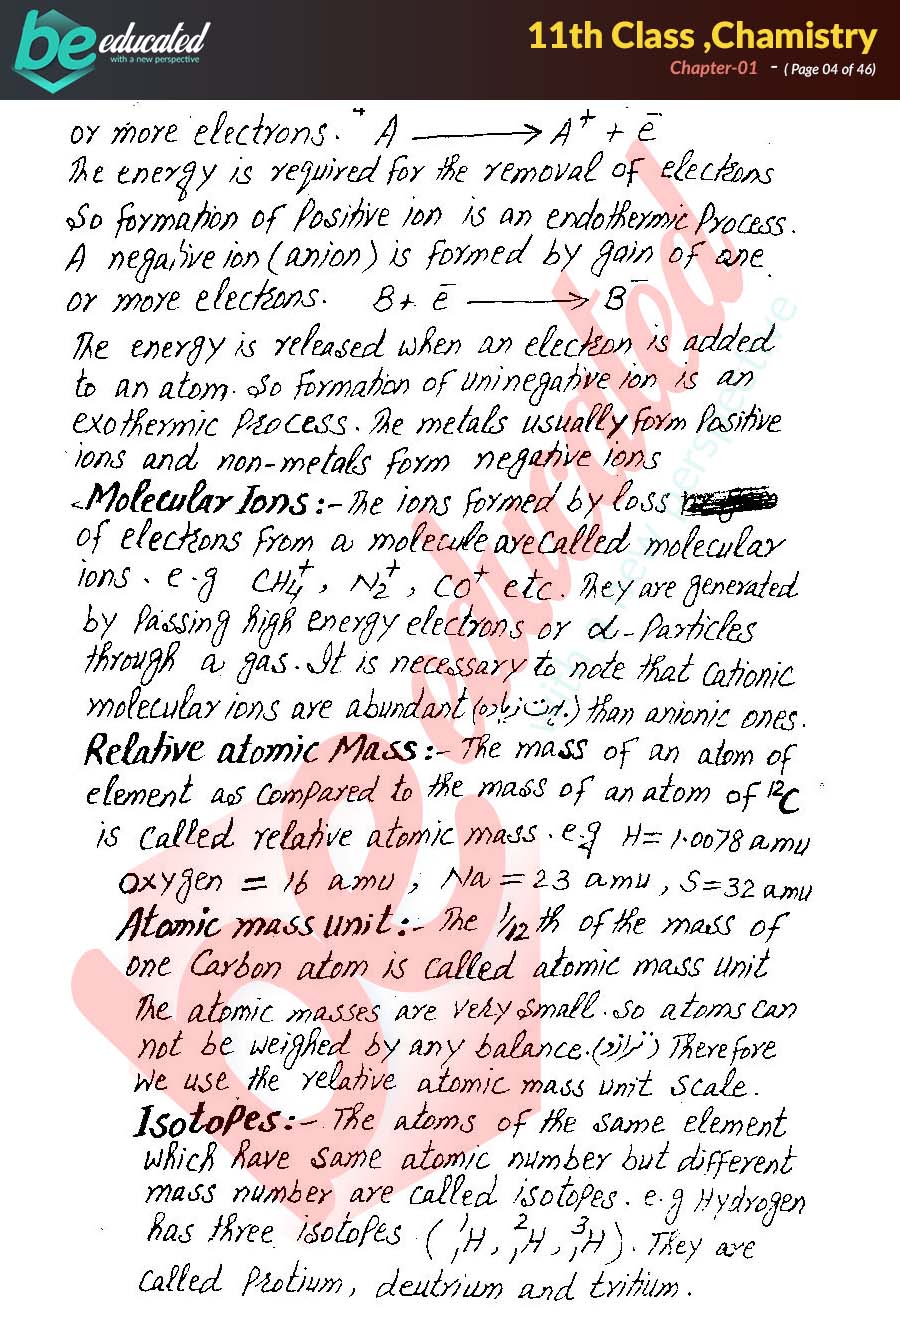 be educated
with a new perspective
11th Class ,Chamistry
Chapter-01 - ( Page 04 of 46)
or more electrons. A ⟶ A⁺ + ē
The energy is required for the removal of electrons
So formation of Positive ion is an endothermic Process.
A negative ion (anion) is formed by gain of one
or more electrons. B + ē ⟶ B⁻
The energy is released when an electron is added
to an atom. So formation of uninegative ion is an
exothermic Process. The metals usually form Positive
ions and non-metals form negative ions
Molecular Ions:- The ions formed by loss
of electrons from a molecule are called molecular
ions. e.g CH₄⁺, N₂⁺, CO⁺ etc. They are generated
by Passing high energy electrons or α-Particles
through a gas. It is necessary to note that cationic
molecular ions are abundant (بہت زیادہ) than anionic ones.
Relative atomic Mass:- The mass of an atom of
element as compared to the mass of an atom of ¹²C
is called relative atomic mass. e.g H = 1.0078 amu
oxygen = 16 amu, Na = 23 amu, S = 32 amu
Atomic mass unit:- The 1/12 th of the mass of
one Carbon atom is called atomic mass unit
The atomic masses are very small. so atoms can
not be weighed by any balance. (ترازو) Therefore
we use the relative atomic mass unit scale.
Isotopes:- The atoms of the same element
which have same atomic number but different
mass number are called isotopes. e.g Hydrogen
has three isotopes (¹₁H, ²₁H, ³₁H). They are
called Protium, deutrium and tritium.
be educated
with a new perspective